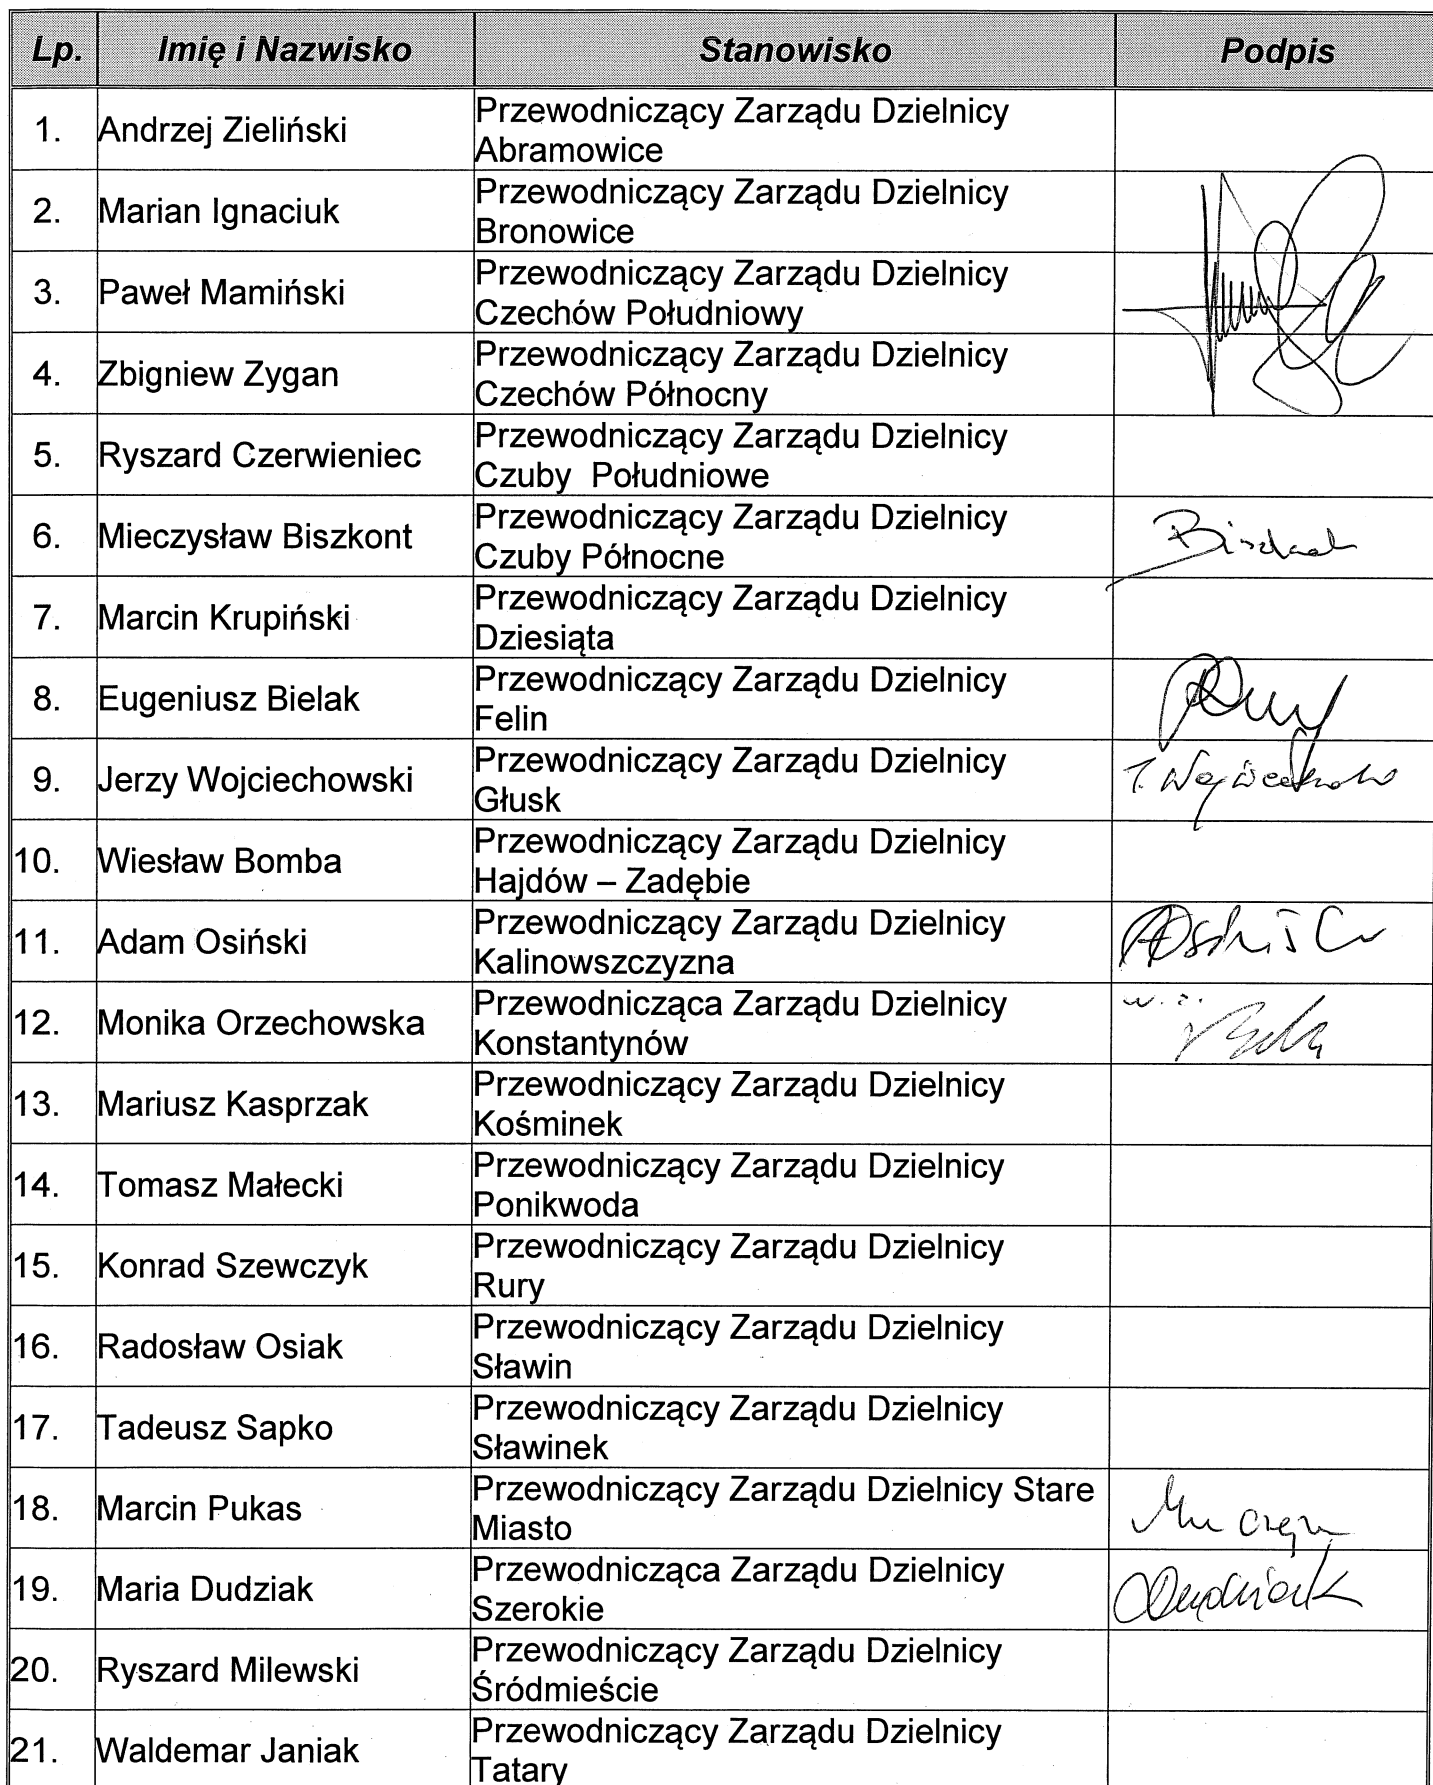 Lp. Imię i Nazwisko Stanowisko Podpis
1. Andrzej Zieliński Przewodniczący Zarządu Dzielnicy
Abramowice
2. Marian Ignaciuk Przewodniczący Zarządu Dzielnicy
Bronowice
3. Paweł Mamiński Przewodniczący Zarządu Dzielnicy
Czechów Południowy
4. Zbigniew Zygan Przewodniczący Zarządu Dzielnicy
Czechów Północny
5. Ryszard Czerwieniec Przewodniczący Zarządu Dzielnicy
Czuby Południowe
6. Mieczysław Biszkont Przewodniczący Zarządu Dzielnicy
Czuby Północne
7. Marcin Krupiński Przewodniczący Zarządu Dzielnicy
Dziesiąta
8. Eugeniusz Bielak Przewodniczący Zarządu Dzielnicy
Felin
9. Jerzy Wojciechowski Przewodniczący Zarządu Dzielnicy
Głusk
10. Wiesław Bomba Przewodniczący Zarządu Dzielnicy
Hajdów – Zadębie
11. Adam Osiński Przewodniczący Zarządu Dzielnicy
Kalinowszczyzna
12. Monika Orzechowska Przewodnicząca Zarządu Dzielnicy w. z.
Konstantynów
13. Mariusz Kasprzak Przewodniczący Zarządu Dzielnicy
Kośminek
14. Tomasz Małecki Przewodniczący Zarządu Dzielnicy
Ponikwoda
15. Konrad Szewczyk Przewodniczący Zarządu Dzielnicy
Rury
16. Radosław Osiak Przewodniczący Zarządu Dzielnicy
Sławin
17. Tadeusz Sapko Przewodniczący Zarządu Dzielnicy
Sławinek
18. Marcin Pukas Przewodniczący Zarządu Dzielnicy Stare
Miasto
19. Maria Dudziak Przewodnicząca Zarządu Dzielnicy Dudziak
Szerokie
20. Ryszard Milewski Przewodniczący Zarządu Dzielnicy
Śródmieście
21. Waldemar Janiak Przewodniczący Zarządu Dzielnicy
Tatary